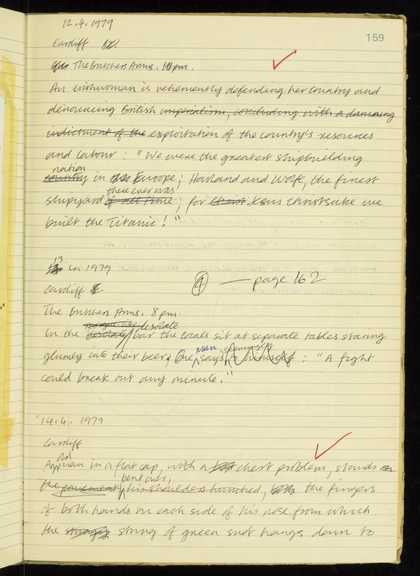 12.4.1979
159
Cardiff
The Butchers Arms. 10pm.
An Irishwoman is vehemently defending her country and
denouncing British imperialism, concluding with a damning
indictment of the exploitation of the country's resources
and labour: "We were the greatest shipbuilding
nation
country in Europe; Harland and Wolf, the finest
there ever was
shipyard of all time; for Christ Jesus Christsake we
built the Titanic!"
13
4 1979
page 162
Cardiff
The Butchers Arms. 8pm.
In the desolate bar the locals sit at separate tables staring
glumly into their beer, One man says : "A fight
could break out any minute."
14.4. 1979
Cardiff
old
A man in a flat cap, with a bad chest problem, stands on
bent over,
the pavement, his shoulders hunched, the fingers
of both hands on each side of his nose from which
the string of green snot hangs down to